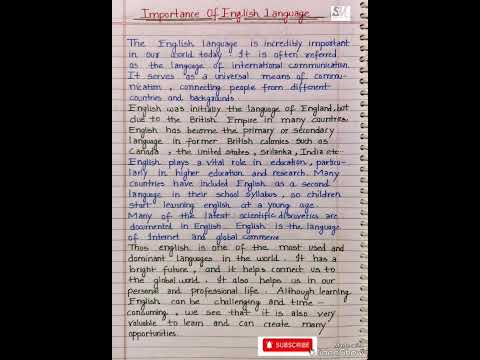 Importance Of English Language
The English language is incredibly important
in our world today. It is often referred
as the language of international communication.
It serves as a universal means of commu-
nication, connecting people from different
countries and backgrounds.
English was initially the language of England, but
due to the British Empire in many countries
English has become the primary or secondary
language in former British colonies such as
Canada, the united states, srilanka, India etc.
English plays a vital role in education, particu-
larly in higher education and research. Many
countries have included English as a second
language in their school syllabus, so children
start learning english at a young age.
Many of the latest scientific discoveries are
documented in English. English is the language
of Internet and global commerce
Thus english is one of the most used and
dominant languages in the world. It has a
bright future, and it helps connect us to
the global world. It also helps us in our
personal and professional life. Although learning
English can be challenging and time-
consuming, we see that it is also very
valuable to learn and can create many
opportunities.
SUBSCRIBE